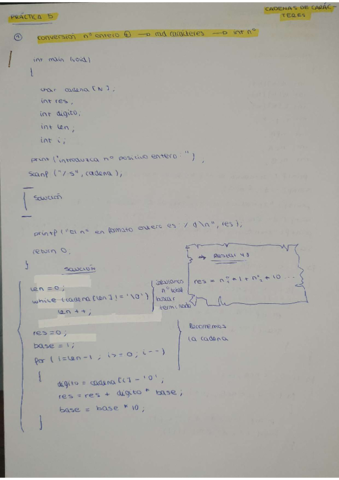 PRÁCTICA 5
CADENAS DE CARÁC-
TERES
conversión nº entero → cad caracteres → int nº
int main (void)
{
char cadena [16];
int res;
int digito;
int len;
int i;
printf ("Introduzca nº positivo entero: ");
scanf ("%s", cadena);
Solución
printf ("El nº en formato entero es %d\n", res);
return 0;
}
solución
len = 0;
while (cadena [len] != '\0')
len ++;
nº
hasta
→
res = n + n · 10 ...
res = 0;
base = 1;
for (i = len - 1; i >= 0; i--)
Recorremos
la cadena
{
digito = cadena [i] - '0';
res = res + digito * base;
base = base * 10;
}